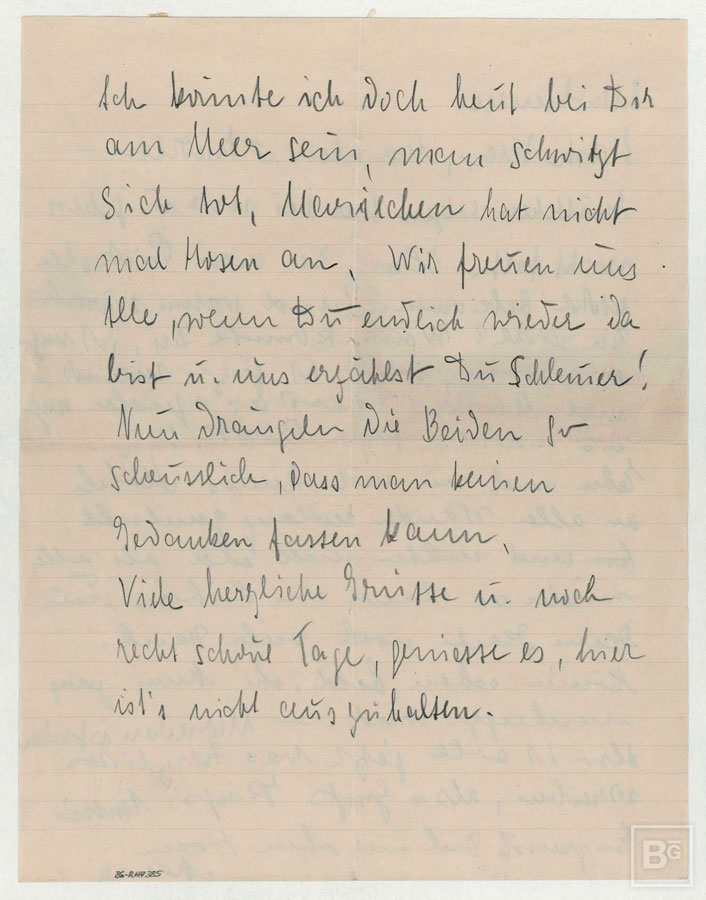 Ich könnte ich doch heut bei Dir
am Meer sein, man schwitzt
Sich tot, Mariechen hat nicht
mal Hosen an. Wir freuen uns
Alle, wenn Du endlich wieder da
bist u. uns erzählst Du Schlemer!
Nun drängeln die Beiden so
scheusslich, dass man keinen
Gedanken fassen kann.
Viele herzliche Grüsse u. noch
recht schöne Tage, geniesse es, hier
ist's nicht auszuhalten.
BG-RHA 385
BG